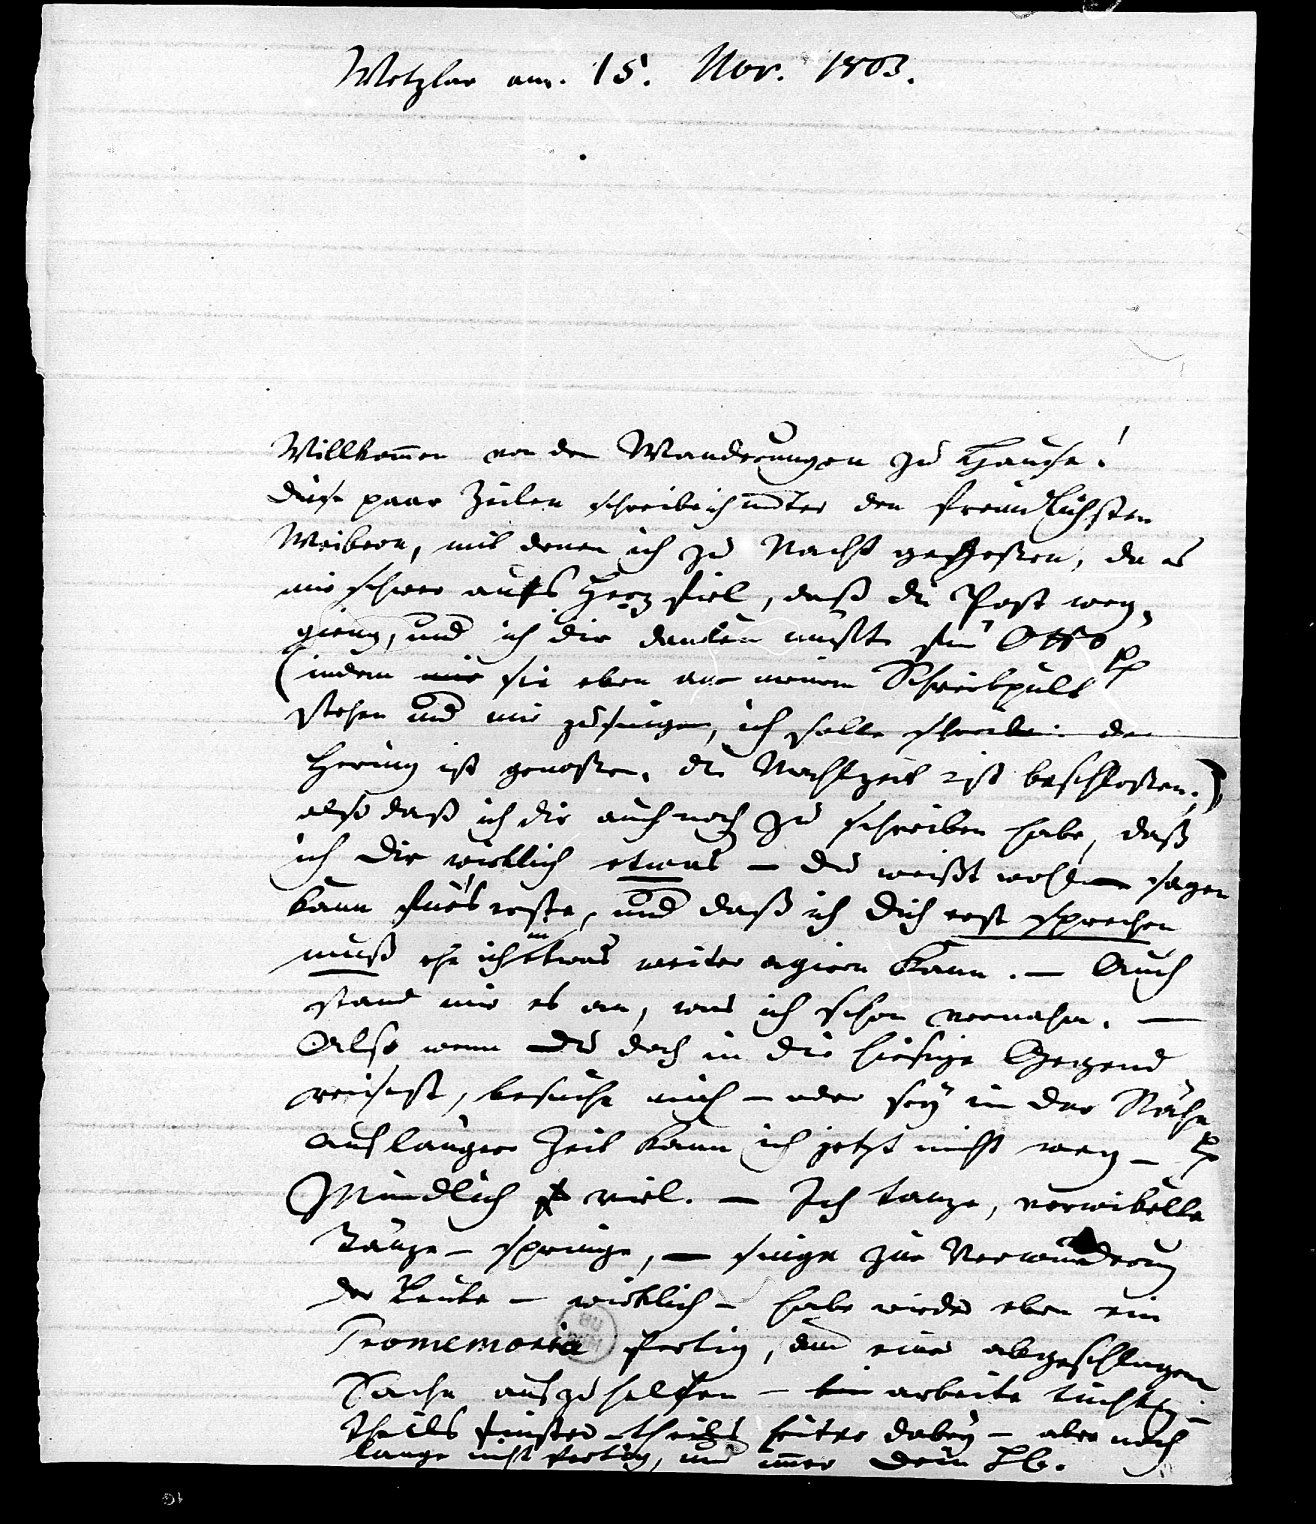 Wetzlar am. 15. Nov. 1803.
Willkommen von den Wanderungen zu Hause!
diese paar Zeilen schreib ich unter den freundlichsten
Weibern, mit denen ich zu Nacht gegessen, da es
mir schwer aufs Herz fiel, daß die Post weg-
gieng, und ich dir danken müßte für Otto pp
(indem mir sie eben an meinem Schreibpult
stehen und mir zusingen, ich solle schreiben der
Hering ist genossen, die Mahlzeit ist beschlossen;)
also daß ich dir auch noch zu schreiben habe, daß
ich dir wirklich etwas — du weißt wohl — sagen
kann für's erste, und daß ich dich erst sprechen
muß ehe ich in etwas weiter agiren kann. — Auch
stand mir es an, was ich schon vernahm. —
Also wenn du doch in die hiesige Gegend
reisest, besuche mich — oder sey in der Nähe
auf länger Zeit kann ich jetzt nicht weg — pp
Mündlich viel. — Ich tanze, verwikelte
Tänze — springe, — singe zur Verwunderung
der Leute — wirklich — habe wieder eben ein
Promemoria fertig, um einer abgeschlagenen
Sache aufzuhelfen — bin arbeite tüchtig —
theils finster theils heiter dabey — aber noch
lange nicht fertig, und immer Dein